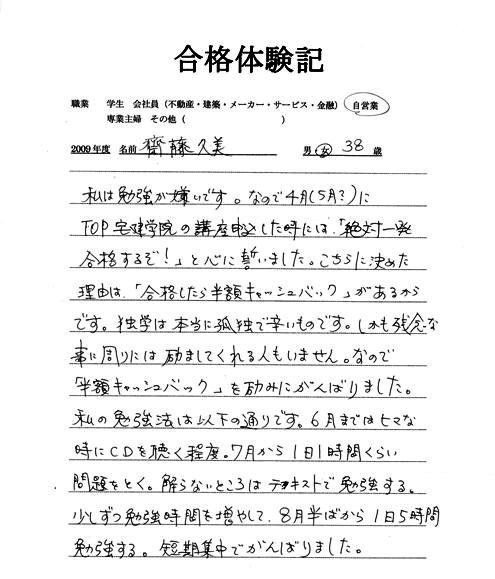 合格体験記
職業　学生　会社員（不動産・建築・メーカー・サービス・金融）　自営業
専業主婦　その他（　　　　　　）
2009年度　名前　齊藤久美　男・女　38歳
私は勉強が嫌いです。なので4月(5月?)に
TOP宅建学院の講座申込した時には、「絶対一発
合格するぞ！」と心に誓いました。こちらに決めた
理由は、「合格したら半額キャッシュバック」があるから
です。独学は本当に孤独で辛いものです。しかも残念な
事に周りには励ましてくれる人もいません。なので
「半額キャッシュバック」を励みにがんばりました。
私の勉強法は以下の通りです。6月まではヒマな
時にCDを聴く程度。7月から1日1時間くらい
問題をとく。解らないところはテキストで勉強する。
少しずつ勉強時間を増やして、8月半ばから1日5時間
勉強する。短期集中でがんばりました。